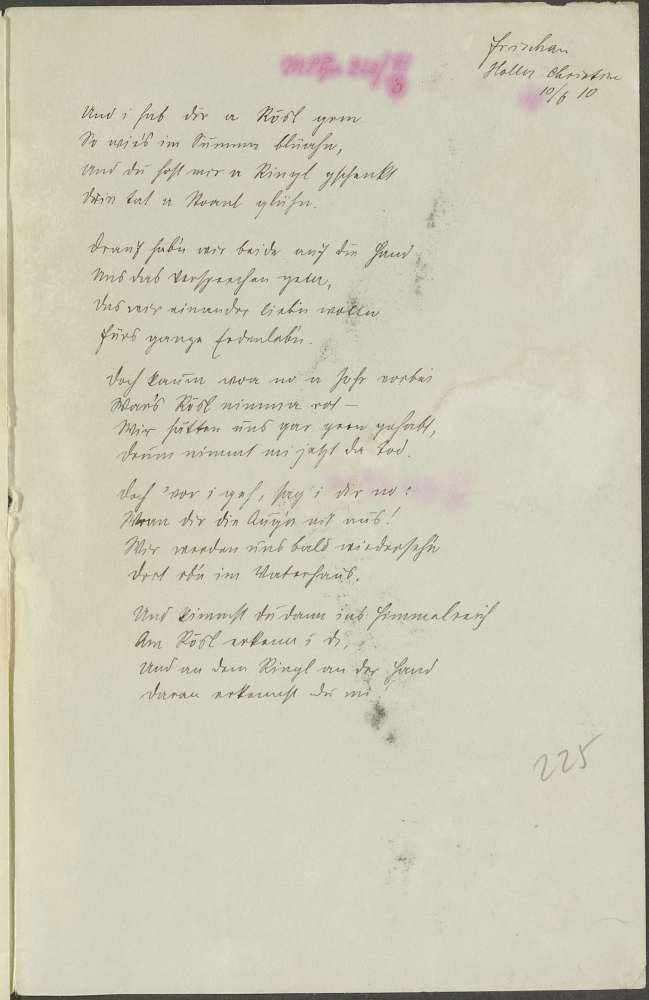 Frischau
Haller Christine
10/6 10
Und i hab dir a Rösl gem
So wie's im Summa blüaht,
Und du hast mir a Ringl gschenkt
Drin tat a Stoanl glühn.
Drauf hab'n wir beide auf die Hand
Uns das Versprechen geben,
Das wir einander lieb'n wolln
Fürs ganze Erdenleb'n.
Doch kaum woar no a Johr vorbei
War's Rösl nimma rot –
Wir hätten uns gar gern gehabt,
Drum nimmt mi jetzt da Tod.
Doch 'vor i geh, sag i dir no:
Wean dir die Aug'n nit aus!
Wir werden uns bald wiedersehn
Dort ob'n im Vaterhaus.
Und kimmst du dann ins Himmelreich
Am Rösl erkenn i di,
Und an dem Ringl an der Hand
Daran erkennst du mi!
225